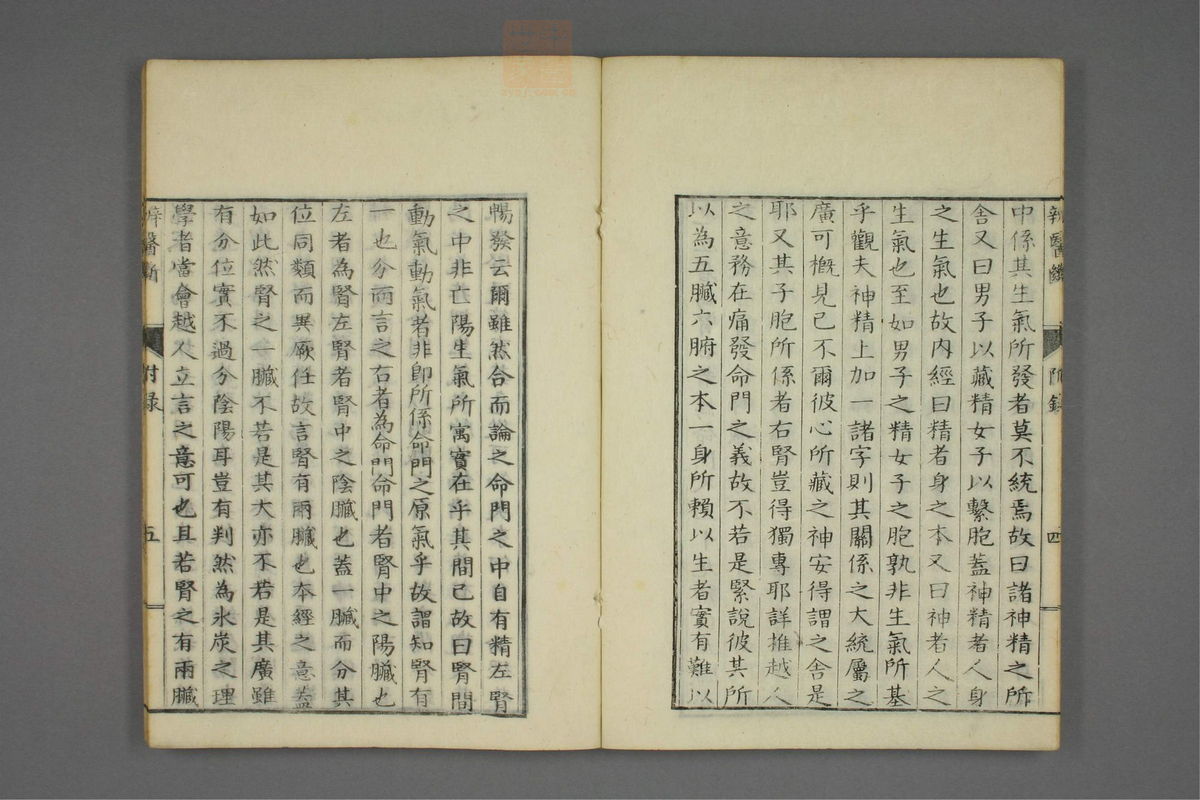 中係其生氣所發者莫不統焉故曰諸神精之所
舍又曰男子以藏精女子以繫胞蓋神精者人身
之生氣也故內經曰精者身之本又曰神者人之
生氣也至如男子之精女子之胞孰非生氣所基
乎觀夫神精上加一諸字則其關係之大統屬之
廣可概見已不爾彼心所藏之神安得謂之舍是
耶又其子胞所係者右腎豈得獨專耶詳推越人
之意務在痛發命門之義故不若是緊說彼其所
以為五臟六腑之本一身所賴以生者實有難以
附錄 四
暢發云爾雖然合而論之命門之中自有精左腎
之中非亡陽生氣所寓實在乎其間已故曰腎間
動氣動氣者非卽所係命門之原氣乎故謂知腎有
一也分而言之右者為命門命門者腎中之陽臟也
左者為腎左腎者腎中之陰臟也蓋一臟而分其
位同類而異厥任故言腎有兩臟也本經之意蓋
如此然腎之一臟不若是其大亦不若是其廣雖
有分位實不過分陰陽耳豈有判然為氷炭之理
學者當會越人立言之意可也且若腎之有兩臟
辨醫斷 附錄 五